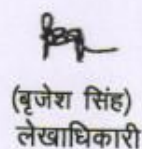 (बृजेश सिंह)
लेखाधिकारी